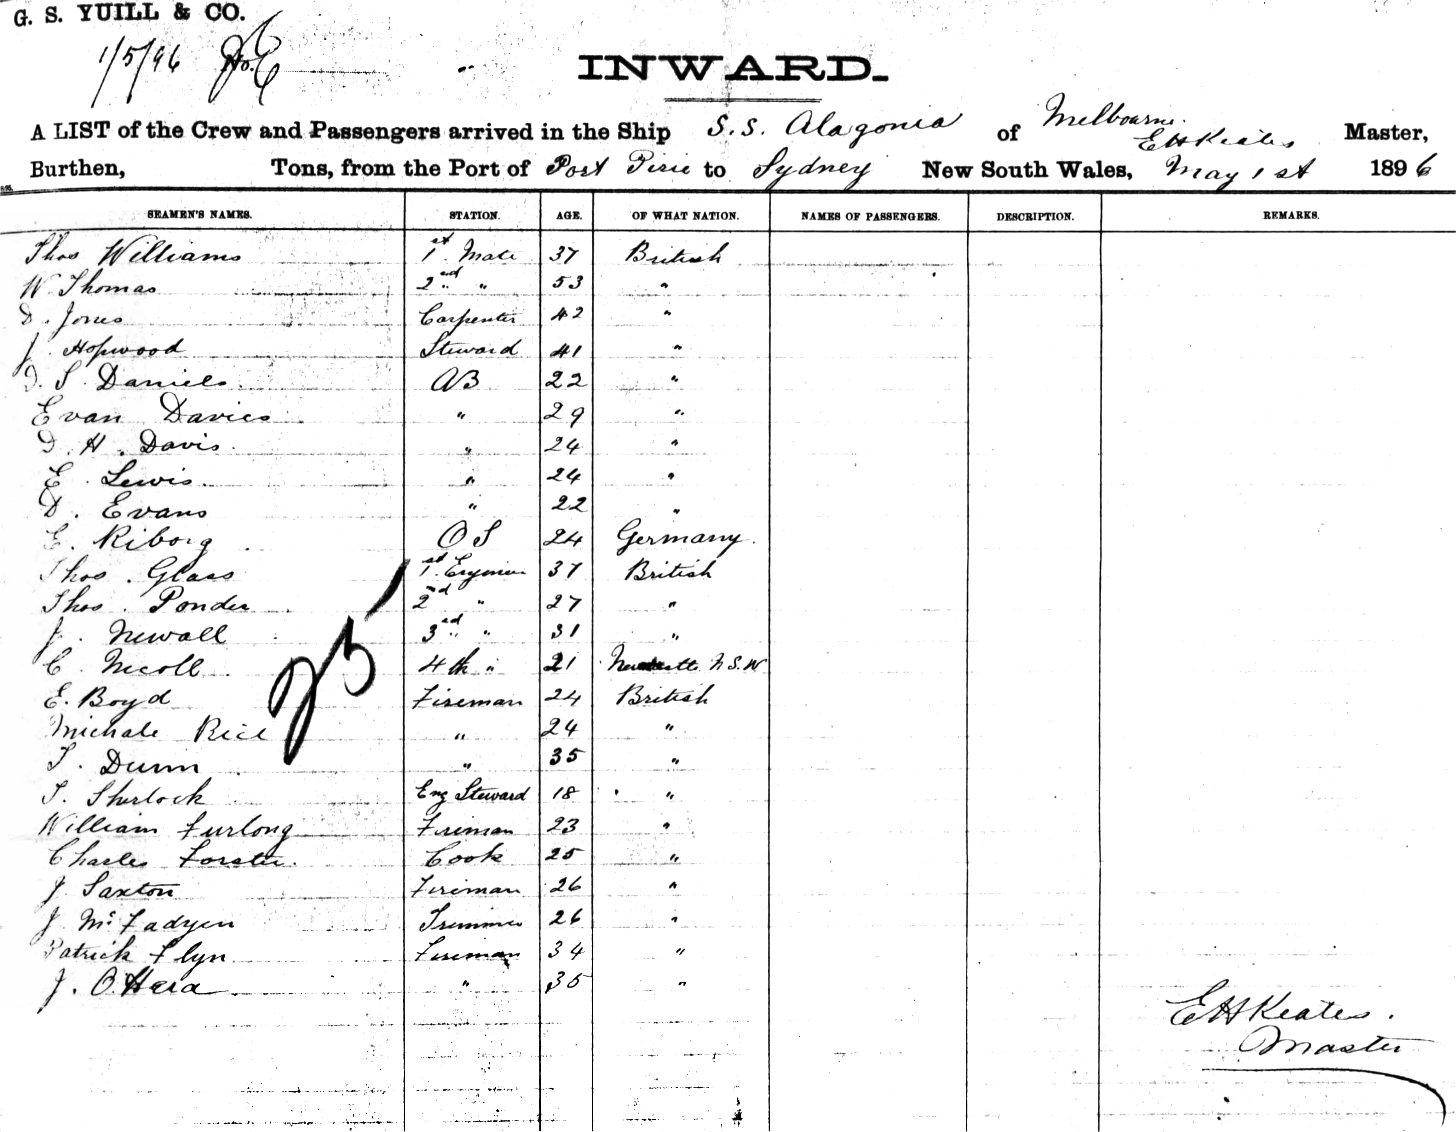 G. S. YUILL & CO.
1/5/96
INWARD.
A LIST of the Crew and Passengers arrived in the Ship S.S. Alagonia of Melbourne. E H Keates Master,
Burthen, Tons, from the Port of Port Pirie to Sydney New South Wales, May 1st 1896
SEAMEN'S NAMES. STATION. AGE. OF WHAT NATION. NAMES OF PASSENGERS. DESCRIPTION. REMARKS.
Thos Williams 1st Mate 37 British
W. Thomas 2nd " 53 "
D. Jones Carpenter 42 "
J. Hopwood Steward 41 "
D. S. Daniels AB 22 "
Evan Davies " 29 "
D. H. Davis " 24 "
E. Lewis " 24 "
D. Evans " 22 "
E. Riborg O S 24 Germany.
Thos. Glass 1st Engineer 37 British
Thos. Ponder 2nd " 27 "
J. Newall 3rd " 31 "
C. Nicoll 4th " 21 Newcastle N.S.W
E. Boyd Fireman 24 British
Michale Rice " 24 "
T. Dunn " 35 "
T. Sherlock Eng Steward 18 "
William Furlong Fireman 23 "
Charles Forster Cook 25 "
J Saxton Fireman 26 "
J. McFadyen Trimmer 26 "
Patrick Flyn Fireman 34 "
J. O'Hara " 35 "
25
E H Keates.
Master